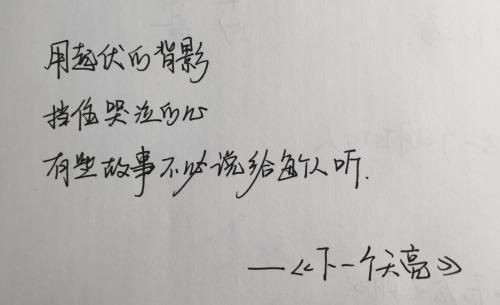 用起伏的背影
挡住哭泣的心
有些故事不必说给每个人听.
——《下一个天亮》